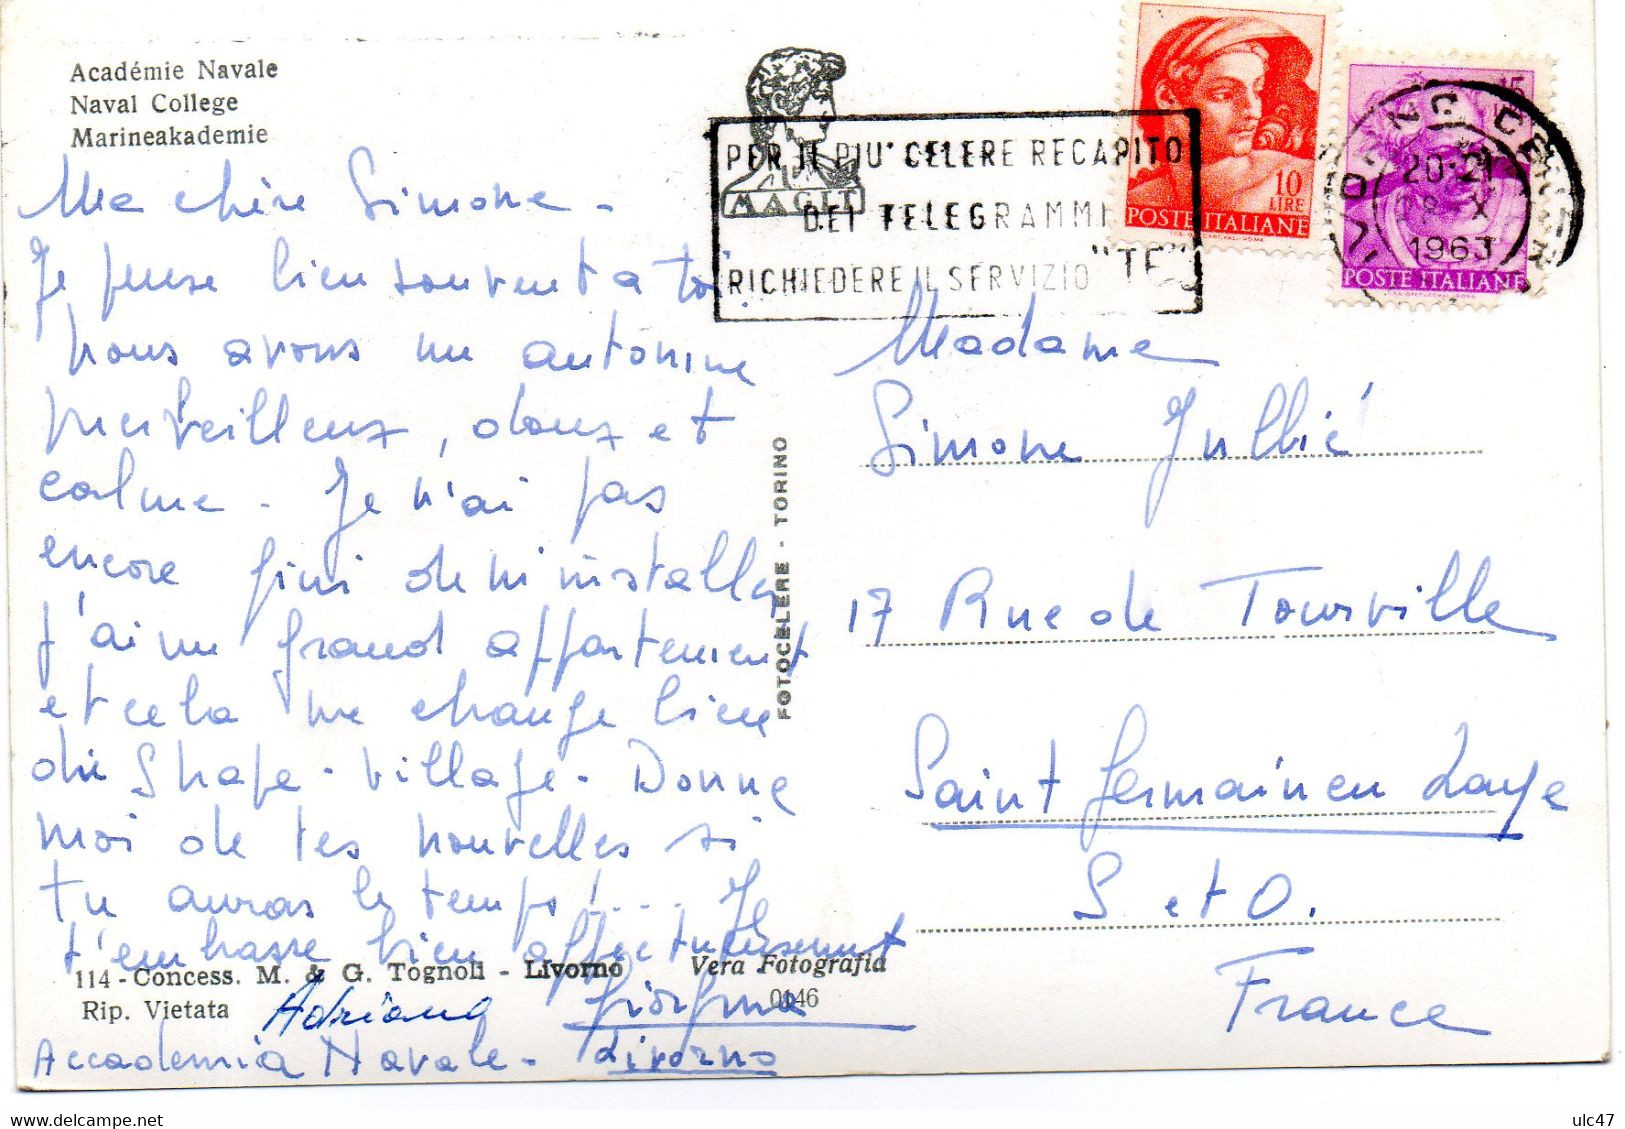 Académie Navale
Naval College
Marineakademie
Ma chère Simone -
Je pense bien souvent a toi.
Nous avons un automne
merveilleux, doux et
calme - Je n'ai pas
encore fini de m'installer
J'ai un grand appartement
et cela me change bien
du Shape-Village - Donne
moi de tes nouvelles si
tu auras le temps!... Je
t'embrasse bien affectueusement
Adriana Giorgina
Accademia Navale - Livorno
114 - Concess. M. & G. Tognoli - Livorno Vera Fotografia
Rip. Vietata 0146
FOTOCELERE - TORINO
MAGIT
PER IL PIU' CELERE RECAPITO
DEI TELEGRAMMI
RICHIEDERE IL SERVIZIO "TE"
10
LIRE
POSTE ITALIANE
15
POSTE ITALIANE
20-21
X
1963
Madame
Simone Jullié
17 Rue de Tourville
Saint Germain en Laye
S et O.
France
ulc47